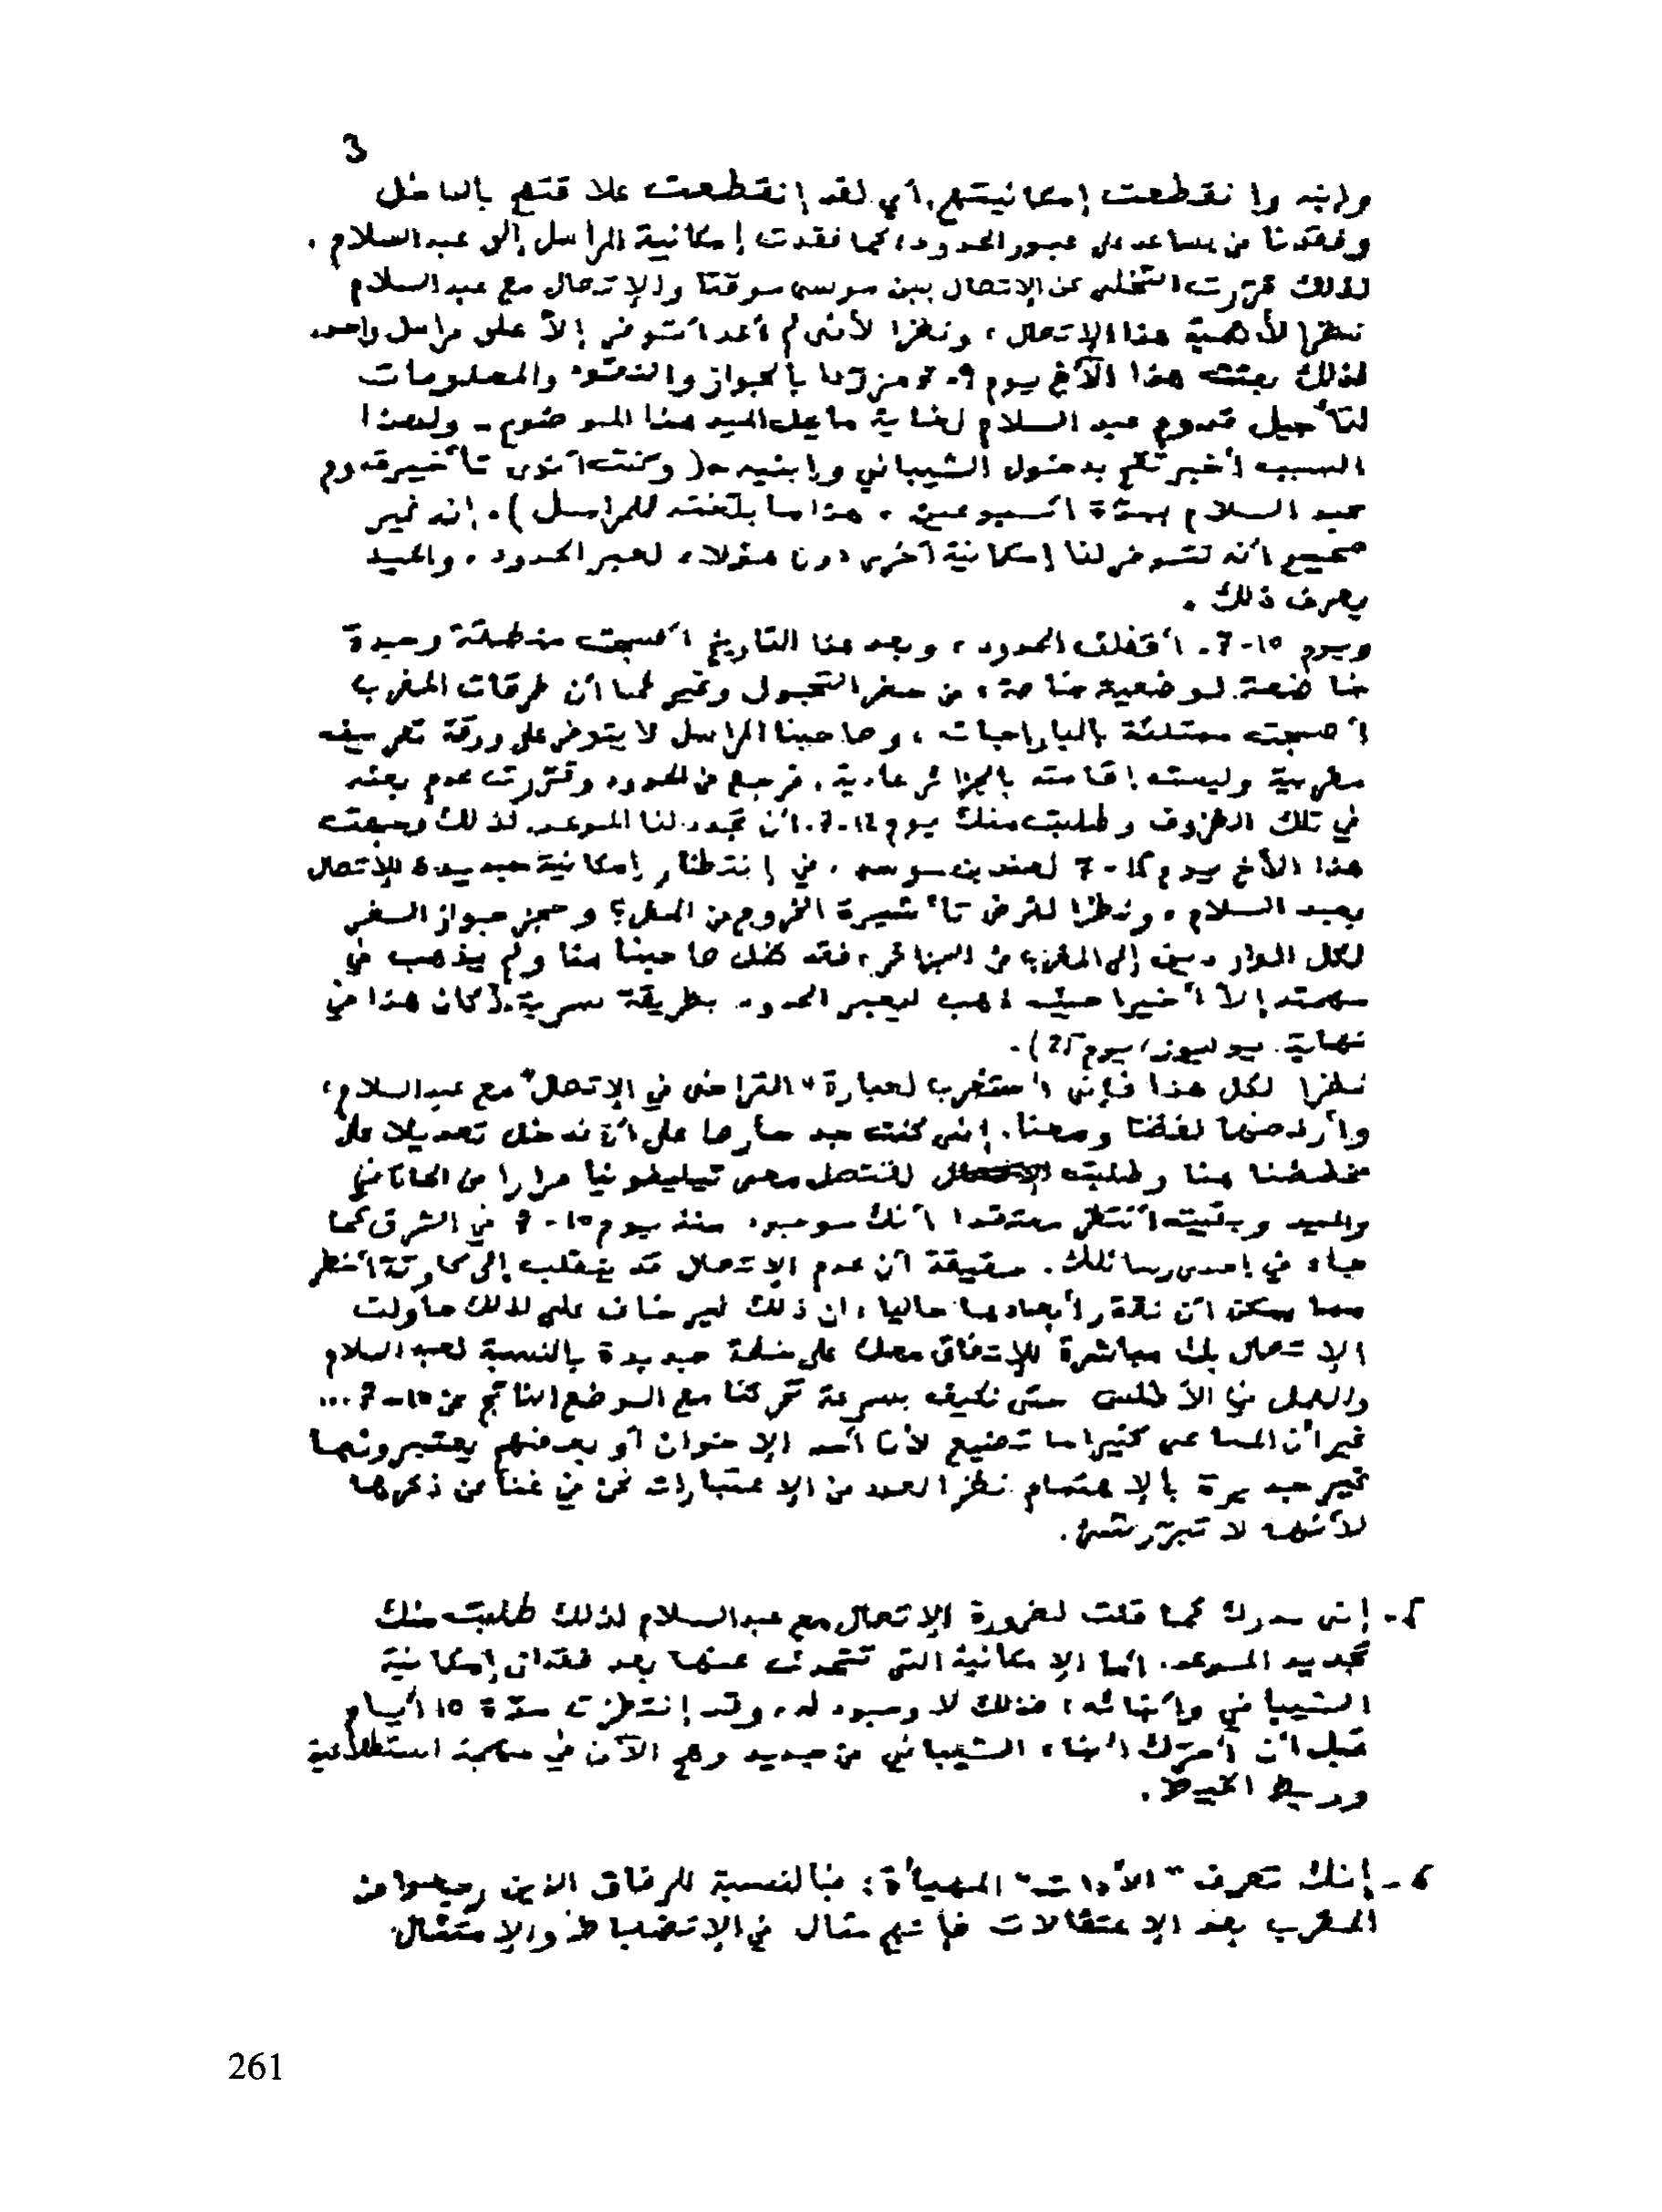 3
وابنه وانقطعت إمكانيتهم، أي لقد إنقطعت علاقتهم بالداخل
وفقدنا من يساعد على عبور الحدود، كما فقدت إمكانية المراسل إلى عبد السلام .
لذلك قررت التخلي عن الإتصال ببن موسى موقتا والإتصال مع عبد السلام
نظرا لأهمية هذا الإتصال ، ونظرا لأنني لم أعد أتوفر إلاّ على مراسل واحد.
لذلك بعثت هذا الأخ يوم 9-7 مزودا بالجواز والنقود والمعلومات
لتأجيل قدوم عبد السلام لغاية ما يحل الميد هذا الموضوع - ولهذا
السبب أخبرتكم بدخول الشيباني وابنيه ( وكنت أنوى تأخير قدوم
عبد السلام بمدّة أسبوعين ، هذا ما بلّغته للمراسل ). إنه غير
صحيح أنه تتوفر لنا إمكانية أخرى دون هؤلاء لعبر الحدود ، والميد
يعرف ذلك .
ويوم 10-7. أقفلت الحدود ، وبعد هذا التاريخ أصبحت منطقة وجدة
خاضعة لوضعية خاصة ، من حظر التجول وغير كما أن طرقات المغرب
أصبحت ممتلئة بالباراجات ، وصاحبنا المراسل لا يتوفر على ورقة تعريف
مغربية وليست إقامته بالجزائر عادية ، فرجع من الحدود وقررت عدم بعثه
في تلك الظروف وطلبت منك يوم 12-7. أن تجدد لنا الموعد. لذلك وجهت
هذا الأخ يوم 15-7 لعند بن موسى ، في إنتظار إمكانية جديدة للإتصال
بعبد السلام ، ونظرا لفرض تأشيرة الخروج من ؟ وحجز جواز السفر
لكل الواردين إلى المغرب من الجزائر ، فقد ظل صاحبنا هنا ولم يذهب في
مهمته إلاّ أخيرا حيث ذهب ليعبر الحدود بطريقة سرية. (كان هذا في
نهاية يوليوز، يوم 25).
نظرا لكل هذا فإنني أستغرب لعبارة "التراخى في الإتصال" مع عبد السلام ،
وأرفضها لفظا ومعنا. إنني كنت جد صارما على أن ندخل تعديلات على
مخططنا هنا وطلبت لتتصل معى تيليفونيا مرارا من
والميد وبقيت أنتظر معتقدا أنك موجود منذ يوم 10-7 في الشرق كما
جاء في إحدى رسائلك . حقيقة أن عدم الإتصال قد ينقلب إلى كارثة أخطر
مما يمكن أن نقدر أبعادها حاليا ، ان ذلك غير خاف علي لذلك حاولت
الإتصال بك مباشرة للإتفاق معك على خطة جديدة بالنسبة لعبد السلام
والعمل في الأطلس حتى نكيف بسرعة تحركنا مع الوضع الناتج عن 10-7 ...
غير أن المساعى كثيرا ما تضيع لأن أحد الإخوان أو بعضهم يعتبرونها
غير جديرة بالإهتمام نظرا لعدد من الإعتبارات نحن في غنا عن ذكرها
لأنها لا تبرّر شىء.
5- إنني مدرك كما قلت لضرورة الإتصال مع عبد السلام لذلك طلبت منك
تجديد الموعد. أما الإمكانية التي تتحدث عنها بعد فقدان إمكانية
الشيباني وأبنائه ، فذلك لا وجود له ، وقد إنتظرت مدّة 10 أيام
قبل أن أحرّك أبناء الشيباني من جديد وهم الآن في مهمة استطلاعية
وربط الخيط .
6- إنك تعرف "الأدات" المهيأة ؛ فبالنسبة للرفاق الذين رجعوا من
المغرب بعد الإعتقالات فإنهم مثال في الإنضباط والإمتثال
261